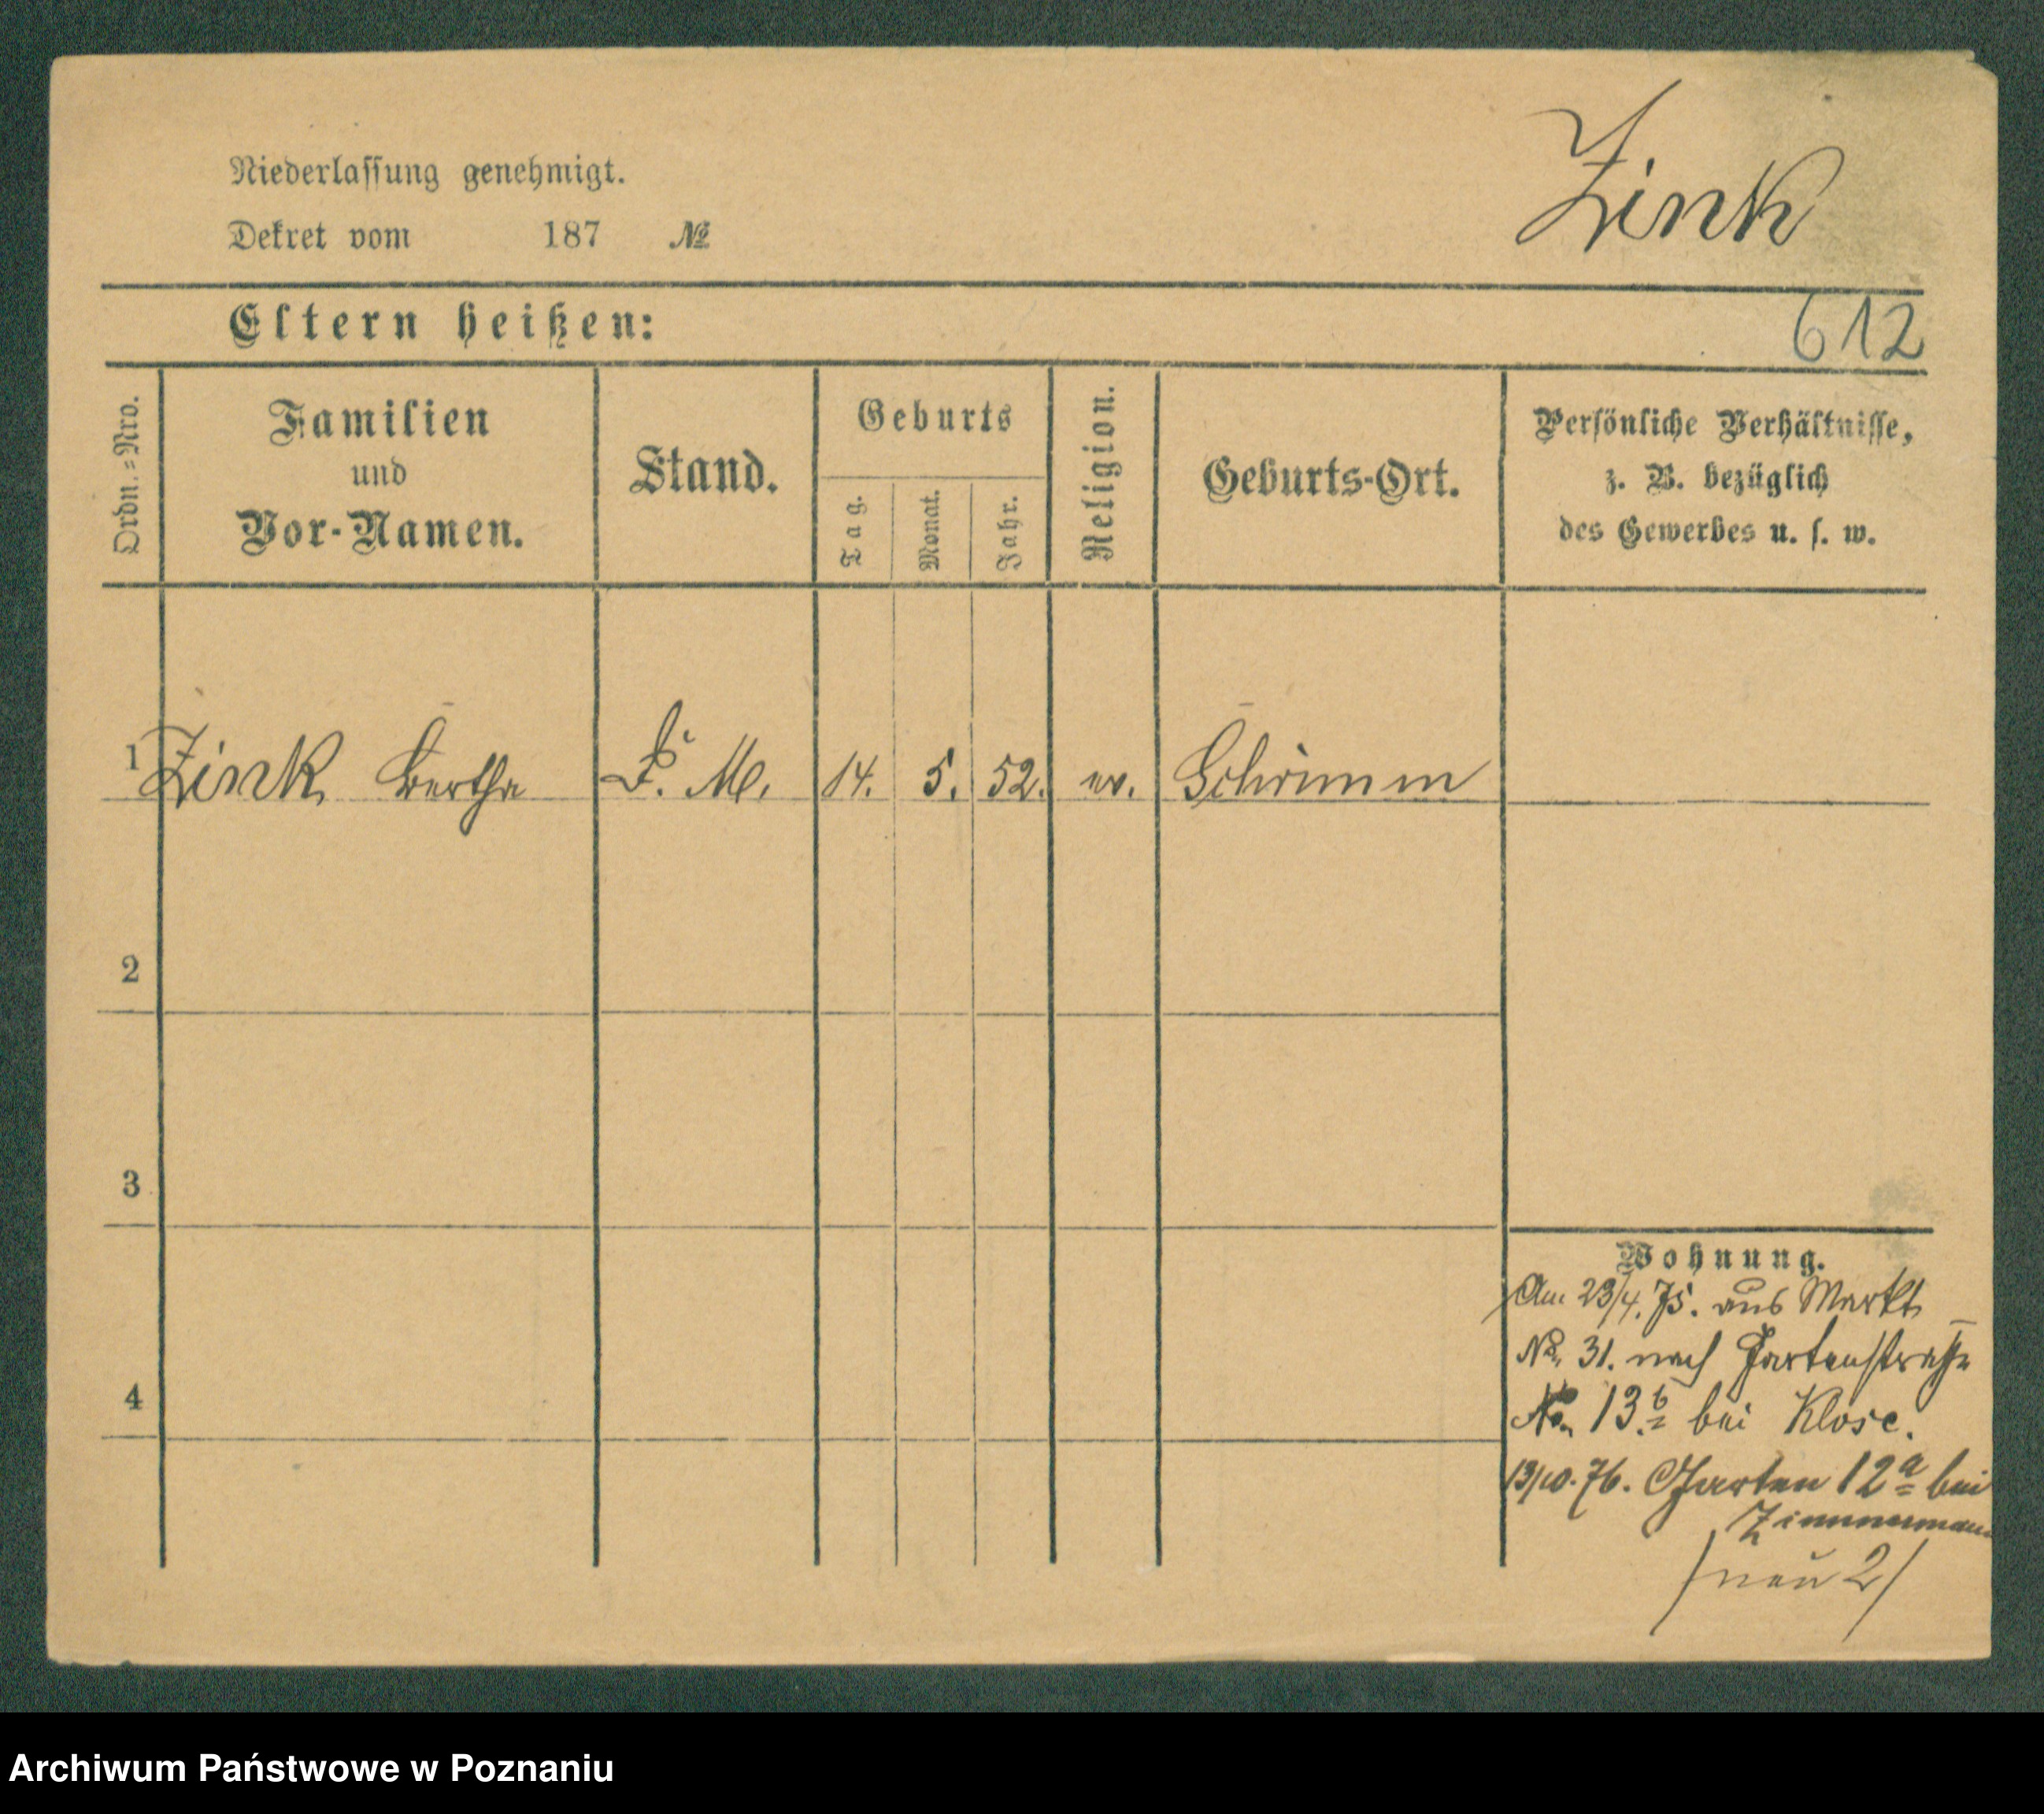 Zink
Niederlassung genehmigt.
Dekret vom 187 №
Eltern heißen:
612
Ordn.=Nro.
Familien
und
Vor-Namen.
Stand.
Geburts
Tag.
Monat.
Jahr.
Religion.
Geburts-Ort.
Persönliche Verhältnisse,
z. B. bezüglich
des Gewerbes u. s. w.
1 Zink Bertha D. M. 14. 5. 52. ev. Schrimm
2
3
4
Wohnung.
Am 23/4. 75. aus Markt
No. 31. nach Gartenstraße
No. 13.b bei Klose.
13/10. 76. Garten 12a bei
Zimmermann
/neu 2/
Archiwum Państwowe w Poznaniu